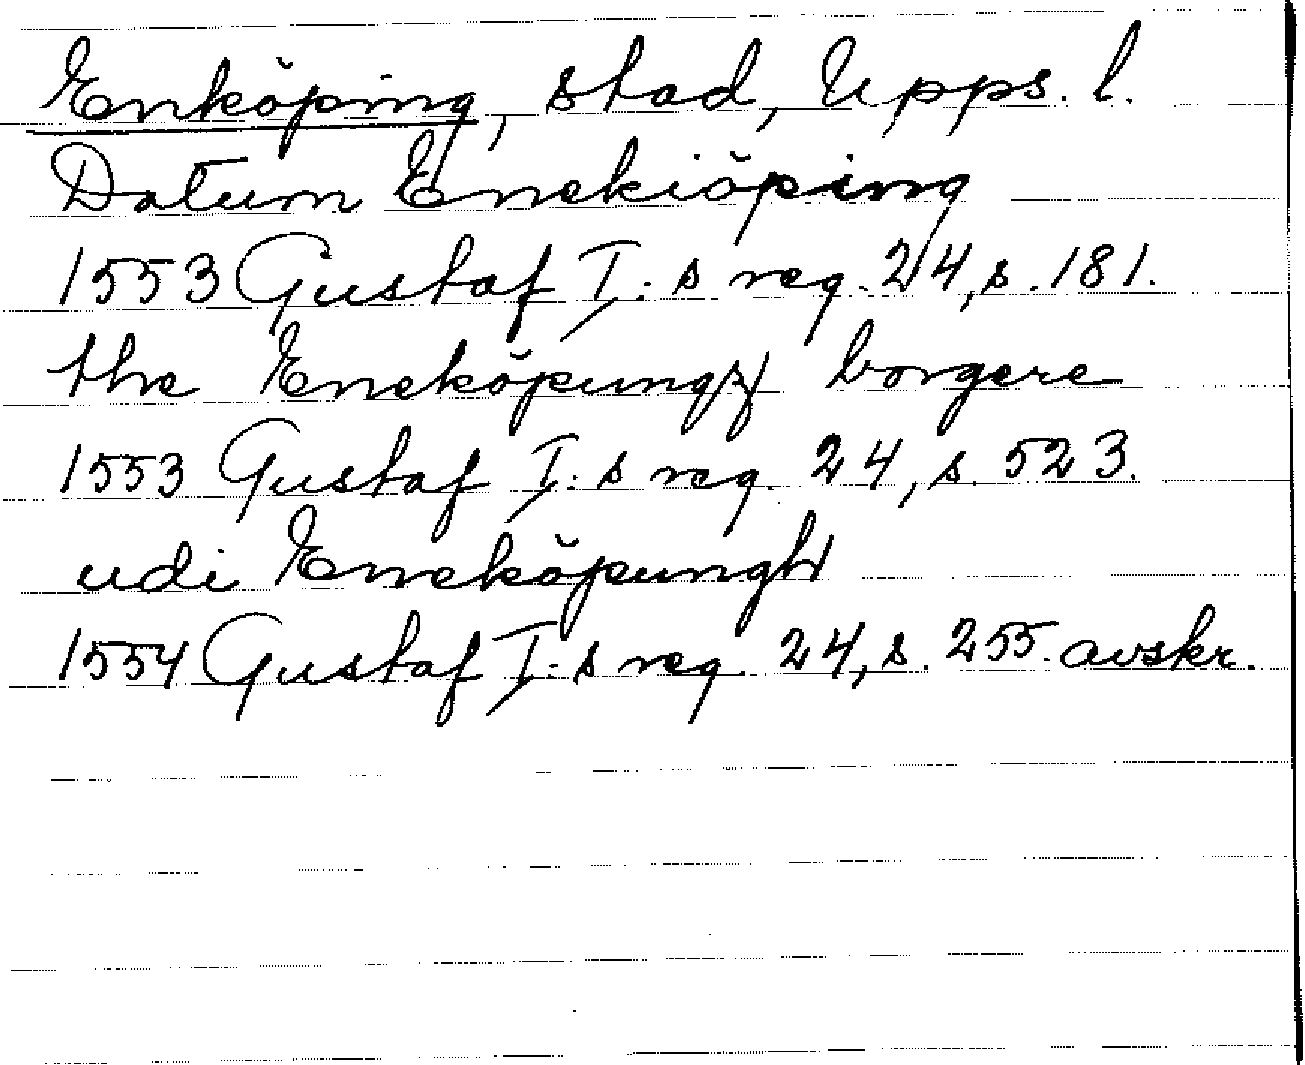 Enköping, stad, Upps. l.
Datum Enekiöping
1553 Gustaf I:s reg. 24, s. 181.
the Eneköpungz borgere
1553 Gustaf I:s reg. 24, s. 523.
udi Eneköpungh
1554 Gustaf I:s reg. 24, s. 255. avskr.